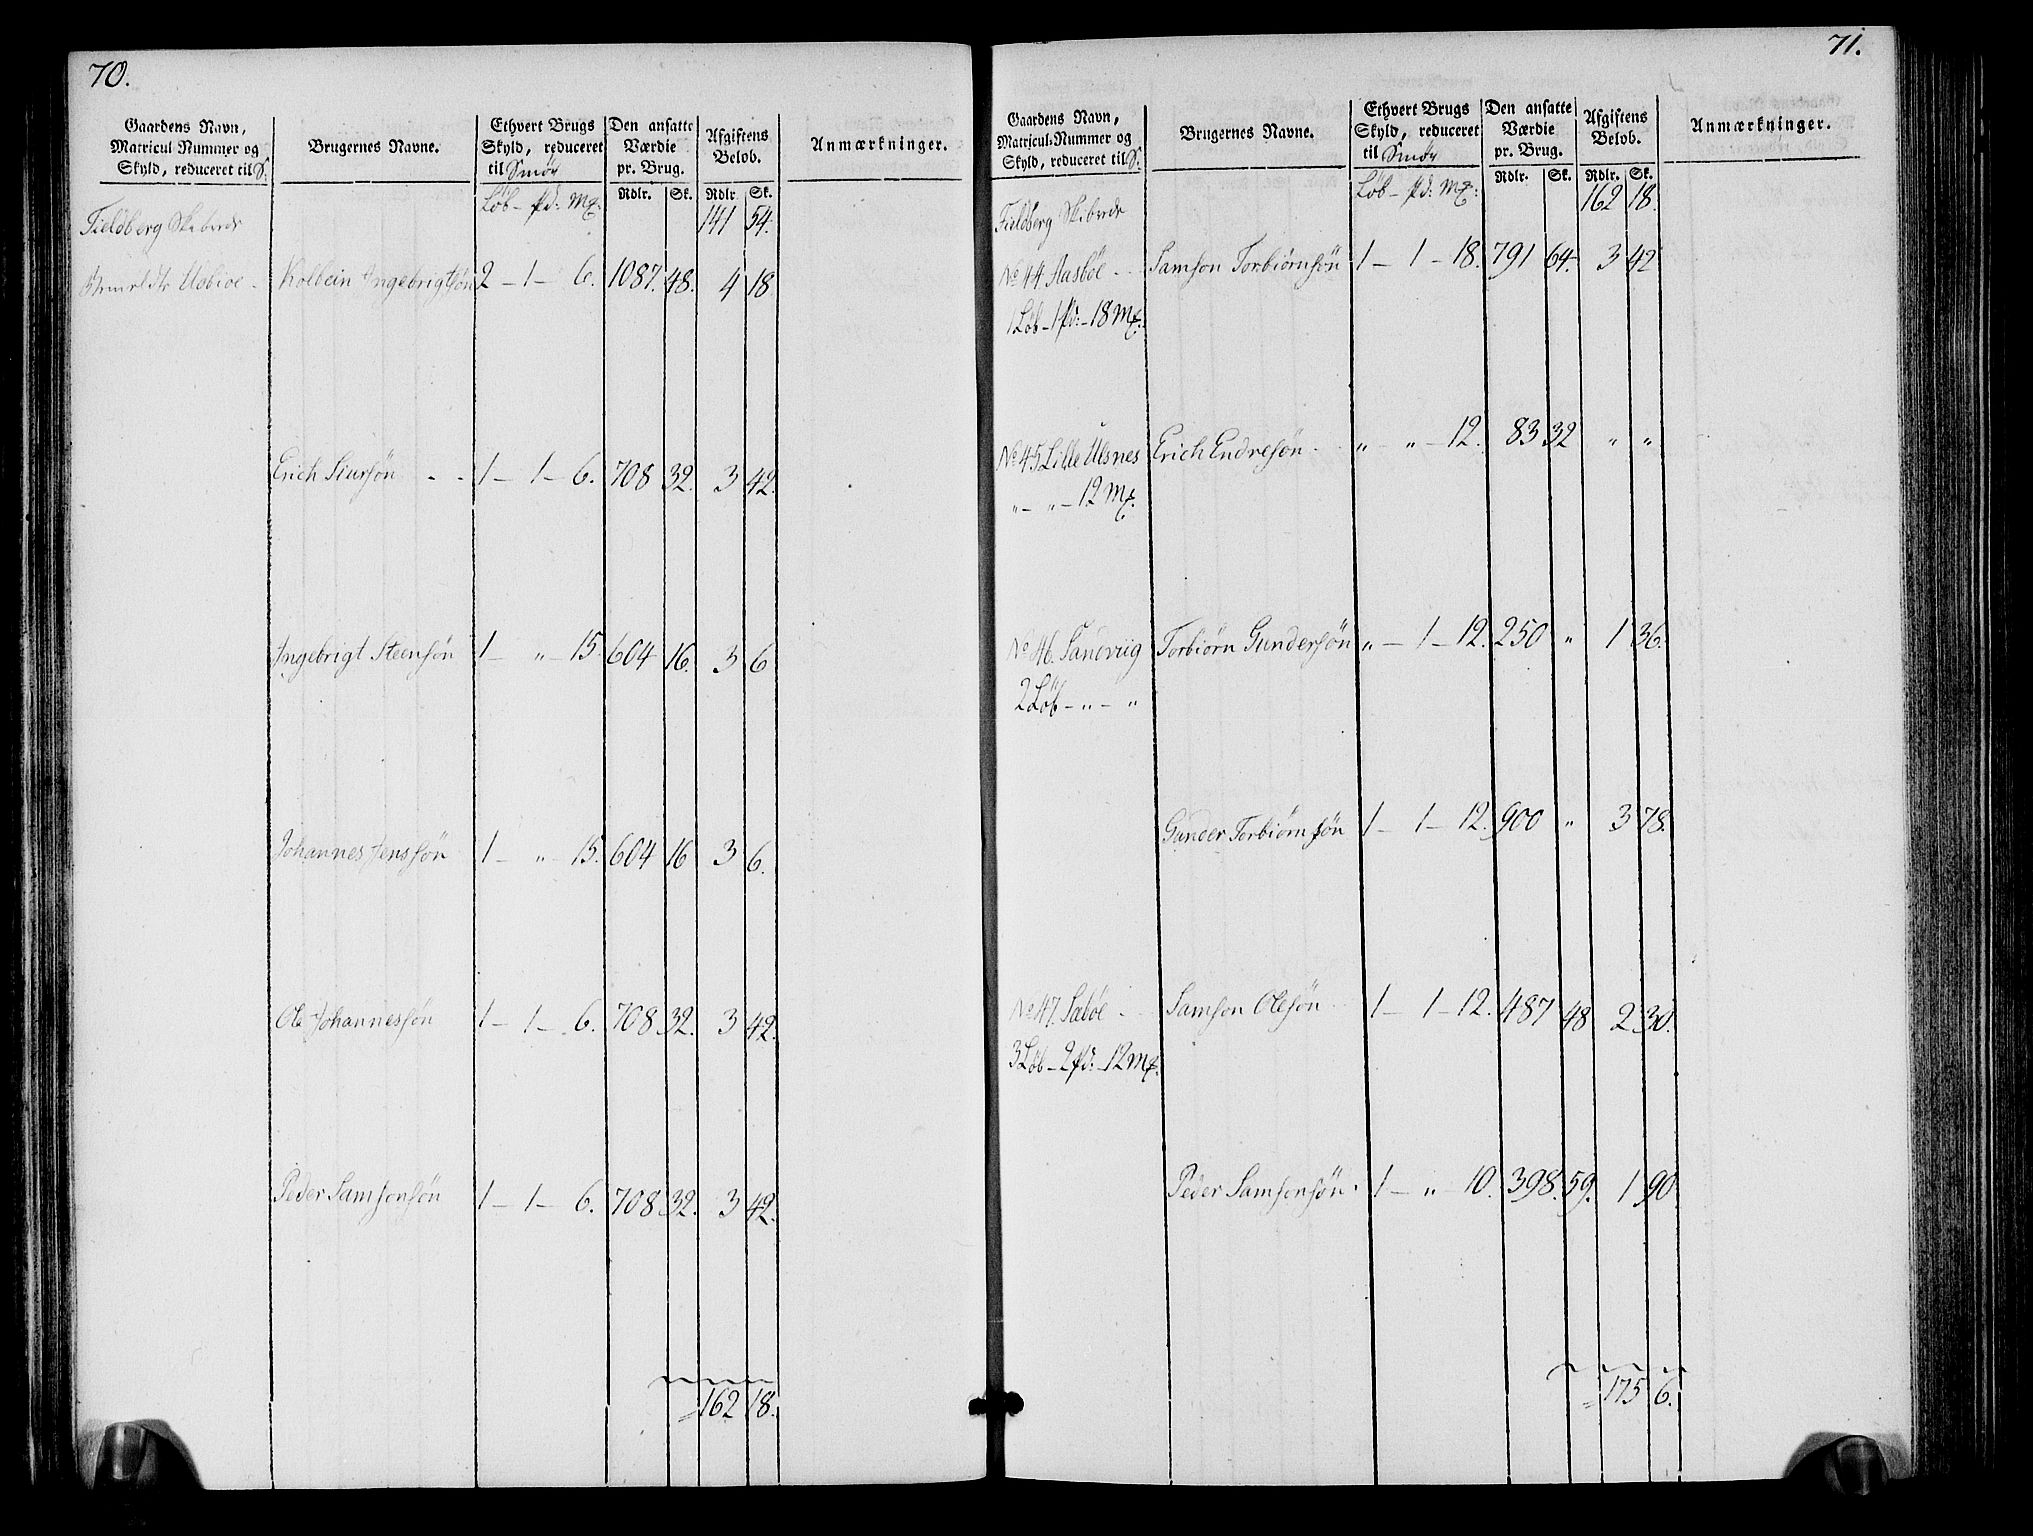 70.
Gaardens Navn,
Matricul Nummer og
Skyld, reduceret til S.
Brugernes Navne.
Ethvert Brugs
Skyld, reduceret
til Smör
Den ansatte
Værdie
pr. Brug.
Afgiftens
Belöb.
Anmærkninger.
Löb - pd: Mk: Rdlr. Sk. Rdlr Sk.
Fieldberg Skibrede 141 54.
Kolbein Ingebrigtsön 2 - 1 - 6. 1087. 48. 4 18.
Erich Siursön - - 1 - 1 - 6. 708 32. 3 42.
Ingebrigt Steensön 1 - " - 15. 604 16. 3 6
Johannes Jenssön 1 - " - 15. 604 16 3 6.
Ole Johannessön 1 - 1 - 6. 708 32. 3 42.
Peder Samsonsön 1 - 1 - 6. 708 32. 3 42.
= 162 18.
71.
Gaardens Navn,
Matricul-Nummer og
Skyld, reduceret til S.
Brugernes Navne.
Ethvert Brugs
Skyld, reduceret
til Smör
Den ansatte
Værdie
pr. Brug.
Afgiftens
Belöb.
Anmærkninger.
Löb - pd: Mk: Rdlr. Sk. Rdlr. Sk.
Fieldberg Skibrede 162 18.
No 44 Aasböe - - Samson Torbiörnsön 1 - 1 - 18. 791 64. 3 42
1 Löb - 1 pd: - 18 Mk:
No 45 Lille Ulsnes Erich Endresön - " - " - 12. 83 32 " "
" - " - 12 Mk.
No 46. Sandviig Torbiörn Gundersön " - 1 - 12. 250 " 1 36.
2 Löb - " - "
Gunder Torbiörnsön 1 - 1 - 12. 900 " 3 78.
No 47. Saböe - - Samson Olesön 1 - 1 - 12. 487 48 2 30.
3 Löb - 2 pd: - 12 Mk.
Peder Samsonsön 1 - " - 10. 398. 59. 1 90.
= 175 6.